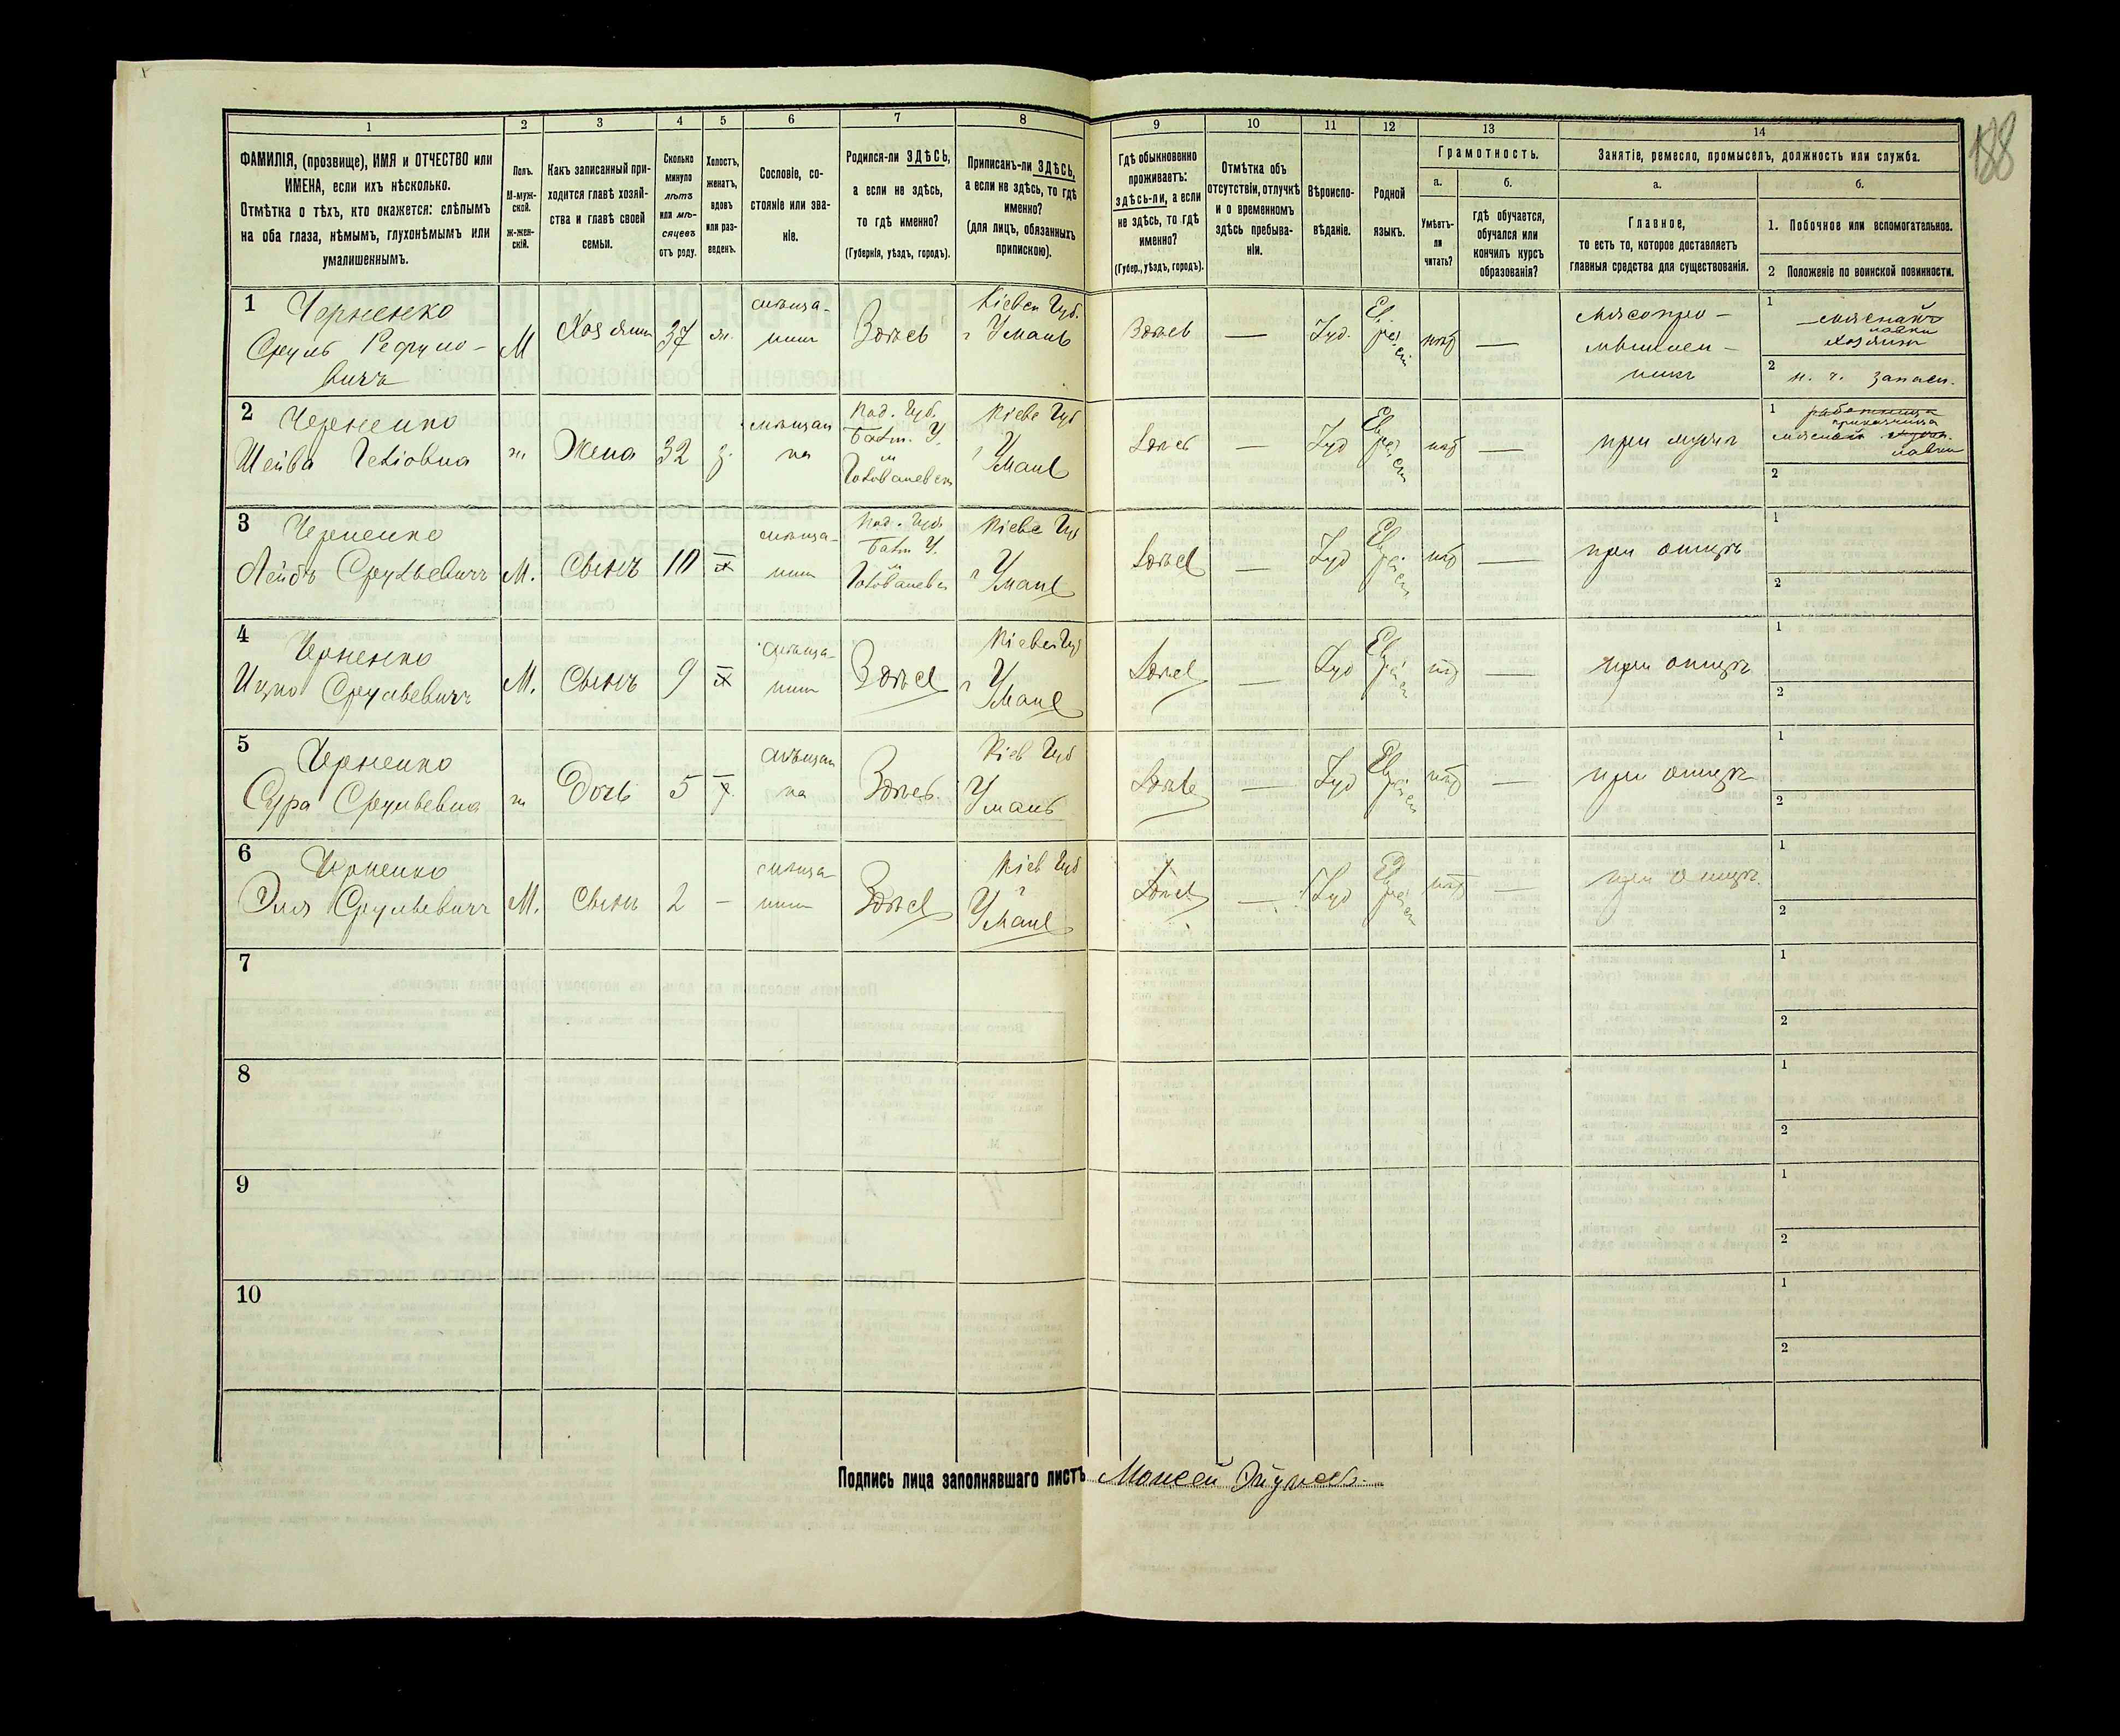 188
1
2
3
4
5
6
7
8
9
10
11
12
13
14
ФАМИЛІЯ, (прозвище), ИМЯ и ОТЧЕСТВО или
ИМЕНА, если ихъ нѣсколько.
Отмѣтка о тѣхъ, кто окажется: слѣпымъ
на оба глаза, нѣмымъ, глухонѣмымъ или
умалишеннымъ.
Полъ.
М-муж-
ской.
Ж-жен-
скій.
Какъ записанный при-
ходится главѣ хозяй-
ства и главѣ своей
семьи.
Сколько
минуло
лѣтъ
или мѣ-
сяцевъ
отъ роду.
Холостъ,
женатъ,
вдовъ
или раз-
веденъ.
Сословіе, со-
стояніе или зва-
ніе.
Родился-ли ЗДѢСЬ,
а если не здѣсь,
то гдѣ именно?
(Губернія, уѣздъ, городъ).
Приписанъ-ли ЗДѢСЬ,
а если не здѣсь, то гдѣ
именно?
(для лицъ, обязанныхъ
припискою).
Гдѣ обыкновенно
проживаетъ:
здѣсь-ли, а если
не здѣсь, то гдѣ
именно?
(Губер., уѣздъ, городъ).
Отмѣтка объ
отсутствіи, отлучкѣ
и о временномъ
здѣсь пребыва-
ніи.
Вѣроиспо-
вѣданіе.
Родной
языкъ.
Грамотность.
а.
Умѣетъ-
ли
читать?
б.
гдѣ обучается,
обучался или
кончилъ курсъ
образованія?
Занятіе, ремесло, промыселъ, должность или служба.
а.
Главное,
то есть то, которое доставляетъ
главныя средства для существованія.
б.
1. Побочное или вспомогательное.
2 Положеніе по воинской повинности.
1
Черненко
Сруль
вичъ
М
Хозяин
37
ж.
мѣща-
нин
Здѣсь
Кіевск Губ.
г Умань
Здѣсь
—
Іуд.
Ев
рей
ск
нѣт
—
Мясопро-
мышлен-
никъ
1
мясной
лавки
хозяин
2
н. ч. запасн.
2
Черненко
Шейва
ж.
Жена
32
з.
мѣщан
ка
Под. Губ.
Балт. У.
м
Голованевск
Кіевс Губ
г Умань
Здѣсь
—
Іуд
Ев
рей
ск
нѣт
—
при мужѣ
1
приказчица
мясной
лавки
2
3
Черненко
Лейбъ Срульевичъ
М.
Сынъ
10
х
мѣща-
нин
Под. Губ.
Балт У.
м
Голованевск
Кіевс Губ
г Умань
Здѣсь
—
Іуд
Ев
рей
ск
нѣт
—
при отцѣ
1
2
4
Черненко
Ицко Срульевичъ
М.
Сынъ
9
х
мѣща-
нин
Здѣсь
Кіевск Губ
г Умань
Здѣсь
—
Іуд
Ев
рей
ск
нѣт
—
при отцѣ
1
2
5
Черненко
Сура Срульевна
ж
Дочь
5
мѣщан
ка
Здѣсь
Кіев Губ
Умань
Здѣсь
—
Іуд
Ев
рей
ск
нѣт
—
при отцѣ
1
2
6
Черненко
Эля Срульевичъ
М.
Сынъ
2
—
мѣща-
нин
Здѣсь
Кіев Губ
г
Умань
Здѣсь
—
Іуд
Ев
рей
ск
нѣт
—
при отцѣ
1
2
7
1
2
8
1
2
9
1
2
10
1
2
Подпись лица заполнявшаго листъ Моисей